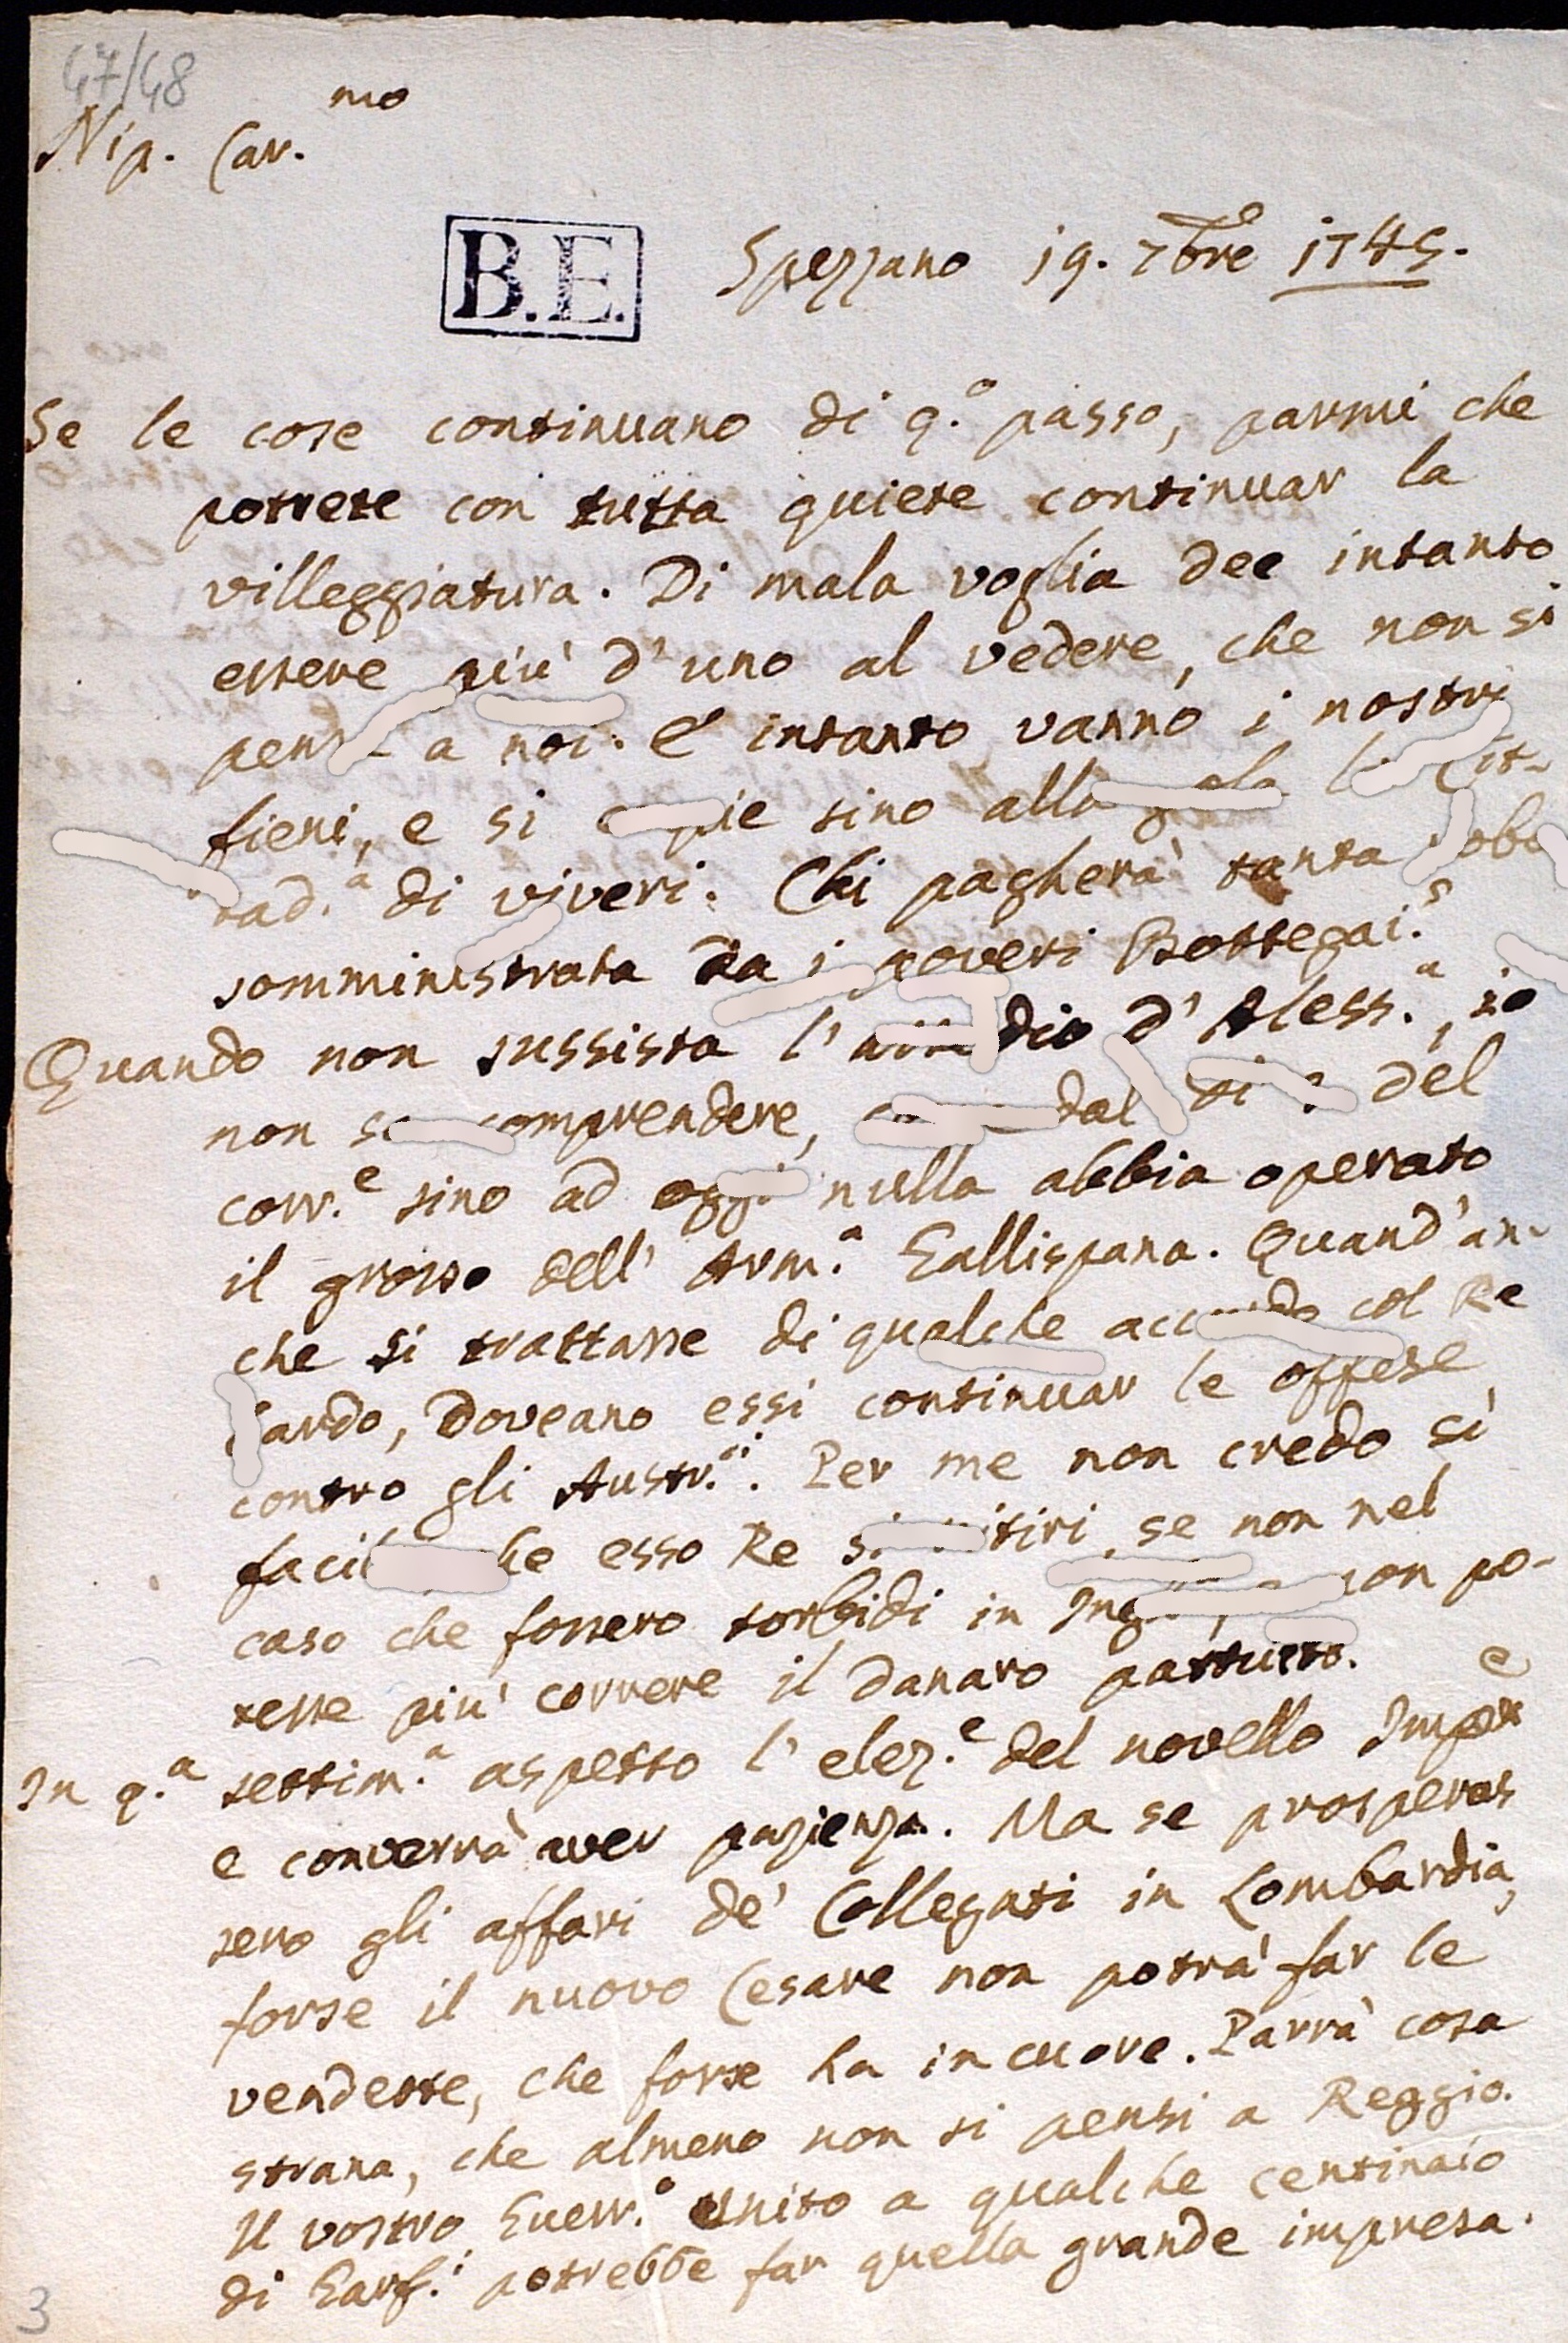 47/48
Nip. Car.mo
B.E.
Spezzano 19. 7bre 1745.
Se le cose continuano di q.o passo, parmi che
potrete con tutta quiete continuar la
villeggiatura. Di mala voglia dee intanto
essere più d'uno al vedere, che non si
a noi. E intanto vanno i nostri
fieni, e si sino alla
di viveri. Chi pagherà tanta
somministrata da i poveri Bottegai.s
Quando non sussista l' d'Aless.a, io
non comprendere, dal del
corr.e sino ad oggi nulla abbia operato
il grosso dell' Arm.a Gallispana. Quand'an-
che si trattasse di qualche col Re
Sardo, doveano essi continuar le offese
contro gli Austr.ci. Per me non credo sì
esso Re si ritiri, se non nel
caso che fossero torbidi in non po-
tesse più correre il danaro pattuito.
In q.a settim.a aspetto l'elez.e del novello Imper.e
e converrà aver pazienza. Ma se prosperas
sero gli affari de' Collegati in Lombardia,
forse il nuovo Cesare non potrà far le
vendette, che forse ha in cuore. Parrà cosa
strana, che almeno non si pensi a Reggio.
Il vostro Guerr.o unito a qualche centinaio
di Garf.i potrebbe far quella grande impresa.
3